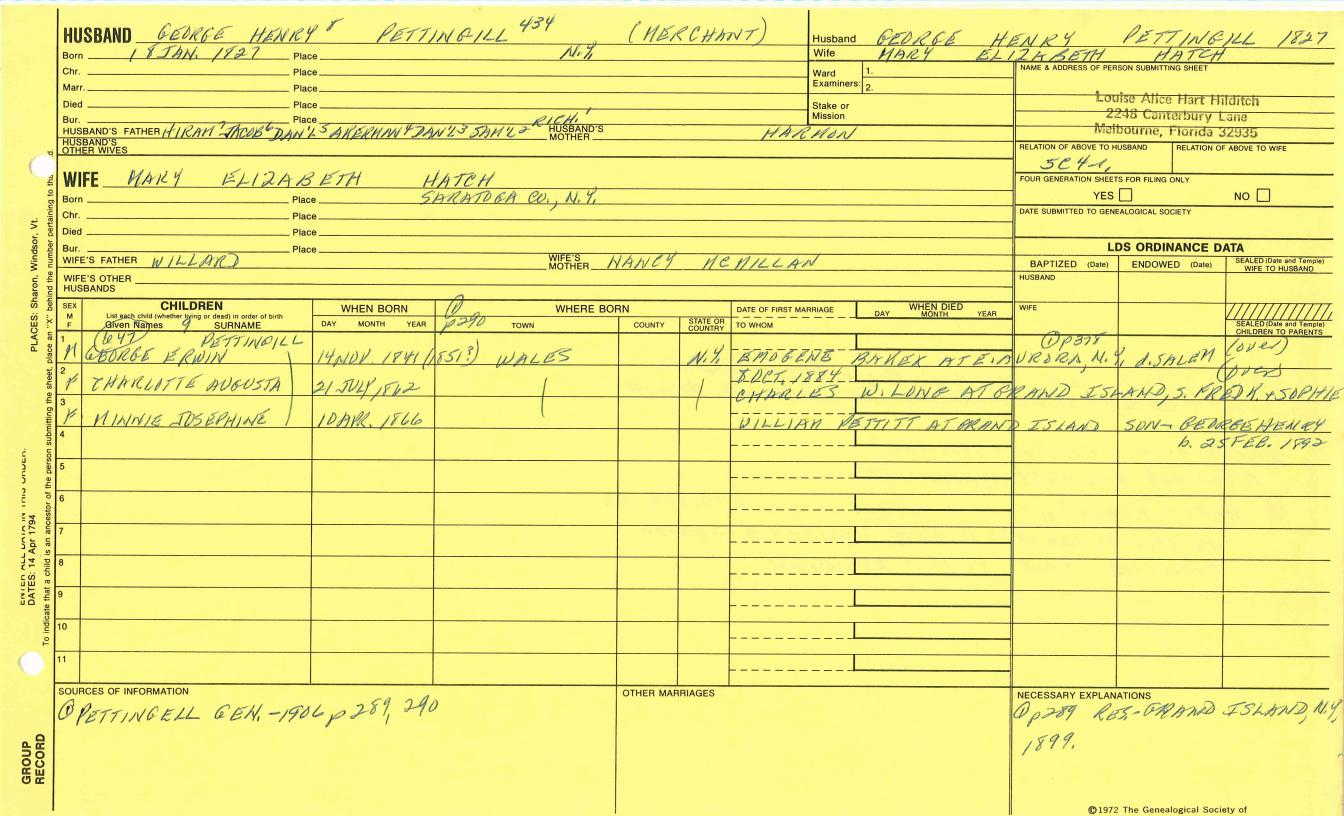 HUSBAND GEORGE HENRY 8 PETTINGILL 434 (MERCHANT)
Born 18 JAN. 1827 Place N.Y.
Chr. Place
Marr. Place
Died Place
Bur. Place
HUSBAND'S FATHER HIRAM 7 JACOB 6 DAN'L 5 AKERMAN 4 DAN'L 3 SAM'L 2 RICH. 1 HUSBAND'S MOTHER HARMON
HUSBAND'S OTHER WIVES
Husband GEORGE HENRY PETTINGILL 1827
Wife MARY ELIZABETH HATCH
Ward Examiners: 1.
2.
Stake or Mission
NAME & ADDRESS OF PERSON SUBMITTING SHEET
Louise Alice Hart Hilditch
2248 Canterbury Lane
Melbourne, Florida 32935
RELATION OF ABOVE TO HUSBAND RELATION OF ABOVE TO WIFE
5C4r,
FOUR GENERATION SHEETS FOR FILING ONLY
YES NO
DATE SUBMITTED TO GENEALOGICAL SOCIETY
WIFE MARY ELIZABETH HATCH
Born Place SARATOGA CO., N.Y.
Chr. Place
Died Place
Bur. Place
WIFE'S FATHER WILLARD WIFE'S MOTHER NANCY McMILLAN
WIFE'S OTHER HUSBANDS
LDS ORDINANCE DATA
BAPTIZED (Date) ENDOWED (Date) SEALED (Date and Temple) WIFE TO HUSBAND
HUSBAND
WIFE
SEALED (Date and Temple) CHILDREN TO PARENTS
SEX M F CHILDREN List each child (whether living or dead) in order of birth Given Names 9 SURNAME
WHEN BORN DAY MONTH YEAR
① p290 WHERE BORN TOWN COUNTY STATE OR COUNTRY
DATE OF FIRST MARRIAGE TO WHOM
WHEN DIED DAY MONTH YEAR
1 (647) PETTINGILL ① p378 (over)
M GEORGE ERWIN 14 NOV. 1841 (1851?) WALES N.Y. EMOGENE BAKER AT E. AURORA, N.Y. d. SALEM
2 8 OCT. 1884 (over)
F CHARLOTTE AUGUSTA 21 JULY, 1862 CHARLES W. LONG AT GRAND ISLAND, S. FREDK. + SOPHIE
3
F MINNIE JOSEPHINE 10 APR. 1866 WILLIAM PETTITT AT GRAND ISLAND SON- GEORGE HENRY
4 b. 25 FEB. 1892
5
6
7
8
9
10
11
SOURCES OF INFORMATION
① PETTINGELL GEN. -1906 p 289, 290
OTHER MARRIAGES
NECESSARY EXPLANATIONS
① p289 RES-GRAND ISLAND, N.Y.
1899.
©1972 The Genealogical Society of
PLACES: Sharon, Windsor, Vt.
ENTER ALL DATA IN THIS ORDER:
DATES: 14 Apr 1794
To indicate that a child is an ancestor of the person submitting the sheet, place an "X" behind the number pertaining to
GROUP RECORD